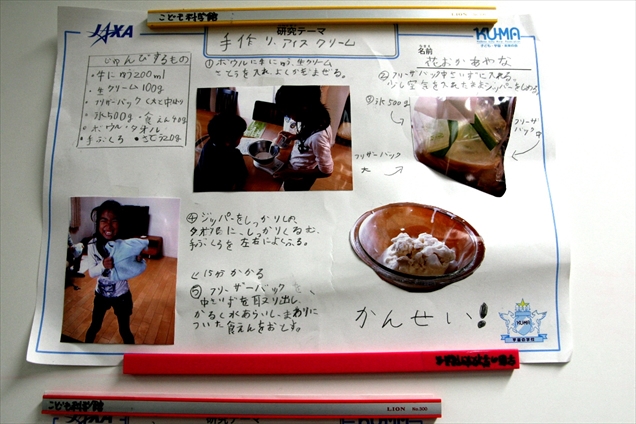 こども科学館
LION
JAXA
研究テーマ
手作り、アイスクリーム
KU-MA
名前
花おかあやな
じゅんびするもの
・牛にゅう200ml
・生クリーム100g
・フリーザーバック(大と中1まい)
・氷500g・食えん90g
・ボウル・タオル
・手ぶくろ ・さとう20g
①ボウルに牛にゅう、生クリーム
さとうを入れ、よくかきまぜる。
②フリーザーバック中さいずに入れる。
少し空気を入れたままジッパーをしめる。
③氷500g
フリーザーバック大
フリーザバック中
④ジッパーをしっかりしめ、
タオルに、しっかりくるむ、
手ぶくろを左右によくふる。
←15分かかる
⑤フリーザーバックを、
中さいずを耳え り出し、
かるく水あらいし、まわりに
ついた食えんをおとす。
かんせい!
KU-MA
宇宙の学校
こども科学館
LION No.300
研究テーマ